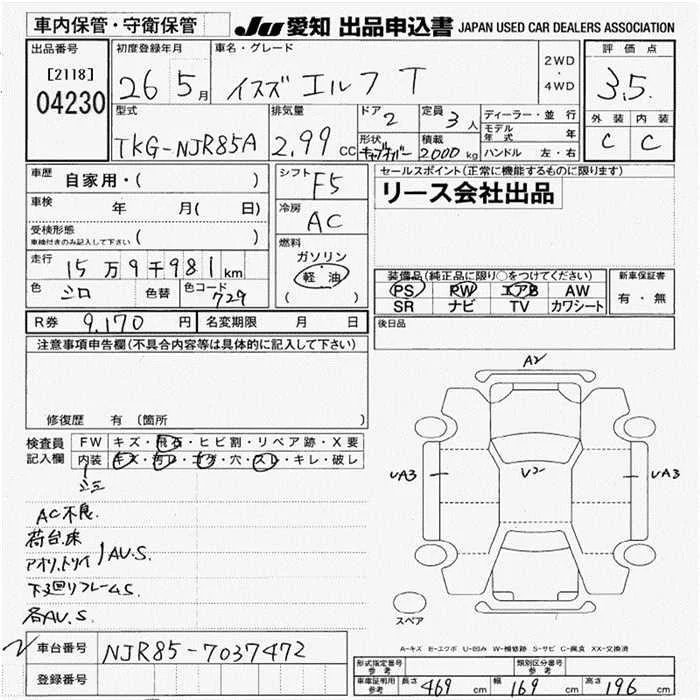 車内保管・守衛保管 JU 愛知 出品申込書 JAPAN USED CAR DEALERS ASSOCIATION
出品番号 初度登録年月 車名・グレード 2WD・4WD 評価点
[2118]
04230 26 5月 イスズ エルフ T 3.5
外装 内装
C C
型式 排気量 ドア 定員 ディーラー・並行
TKG-NJR85A 2.99 CC 2 3人 モデル年式 年
形状 積載 ハンドル 左・右
2000kg
車歴 自家用・( ) シフト F5 セールスポイント(正常に機能するものに限ります)
リース会社出品
車検 年 月( 日) 冷房 AC
受検形態 ( )
車検付きのみ記入して下さい
燃料
ガソリン
軽油
( )
走行 15万9千981km
色 シロ 色替 色コード 729
装備品(純正品に限り○をつけてください) 新車保証書
PS PW エアB AW 有・無
SR ナビ TV カワシート
R券 9,170円 名変期限 月 日 後日品
注意事項申告欄(不具合内容等は具体的に記入して下さい)
修復歴 有 (箇所 )
検査員 FW キズ・飛石・ヒビ割・リペア跡・X要
記入欄 内装 キズ・汚レ・コゲ・穴・スレ・キレ・破レ
シミ
AC不良.
荷台.床
アオリ.トリイ AU.S.
下回りフレームS.
各AU.S.
A2
UA3 V2 UA3
スペア
A-キズ E-エクボ U-凹み W-補修跡 S-サビ C-腐食 XX-交換済
車台番号 NJR85-7037472
登録番号
形式指定番号 参考 類別区分番号 参考
車庫証明用 参考 長さ 469 cm 幅 169 cm 高さ 196 cm